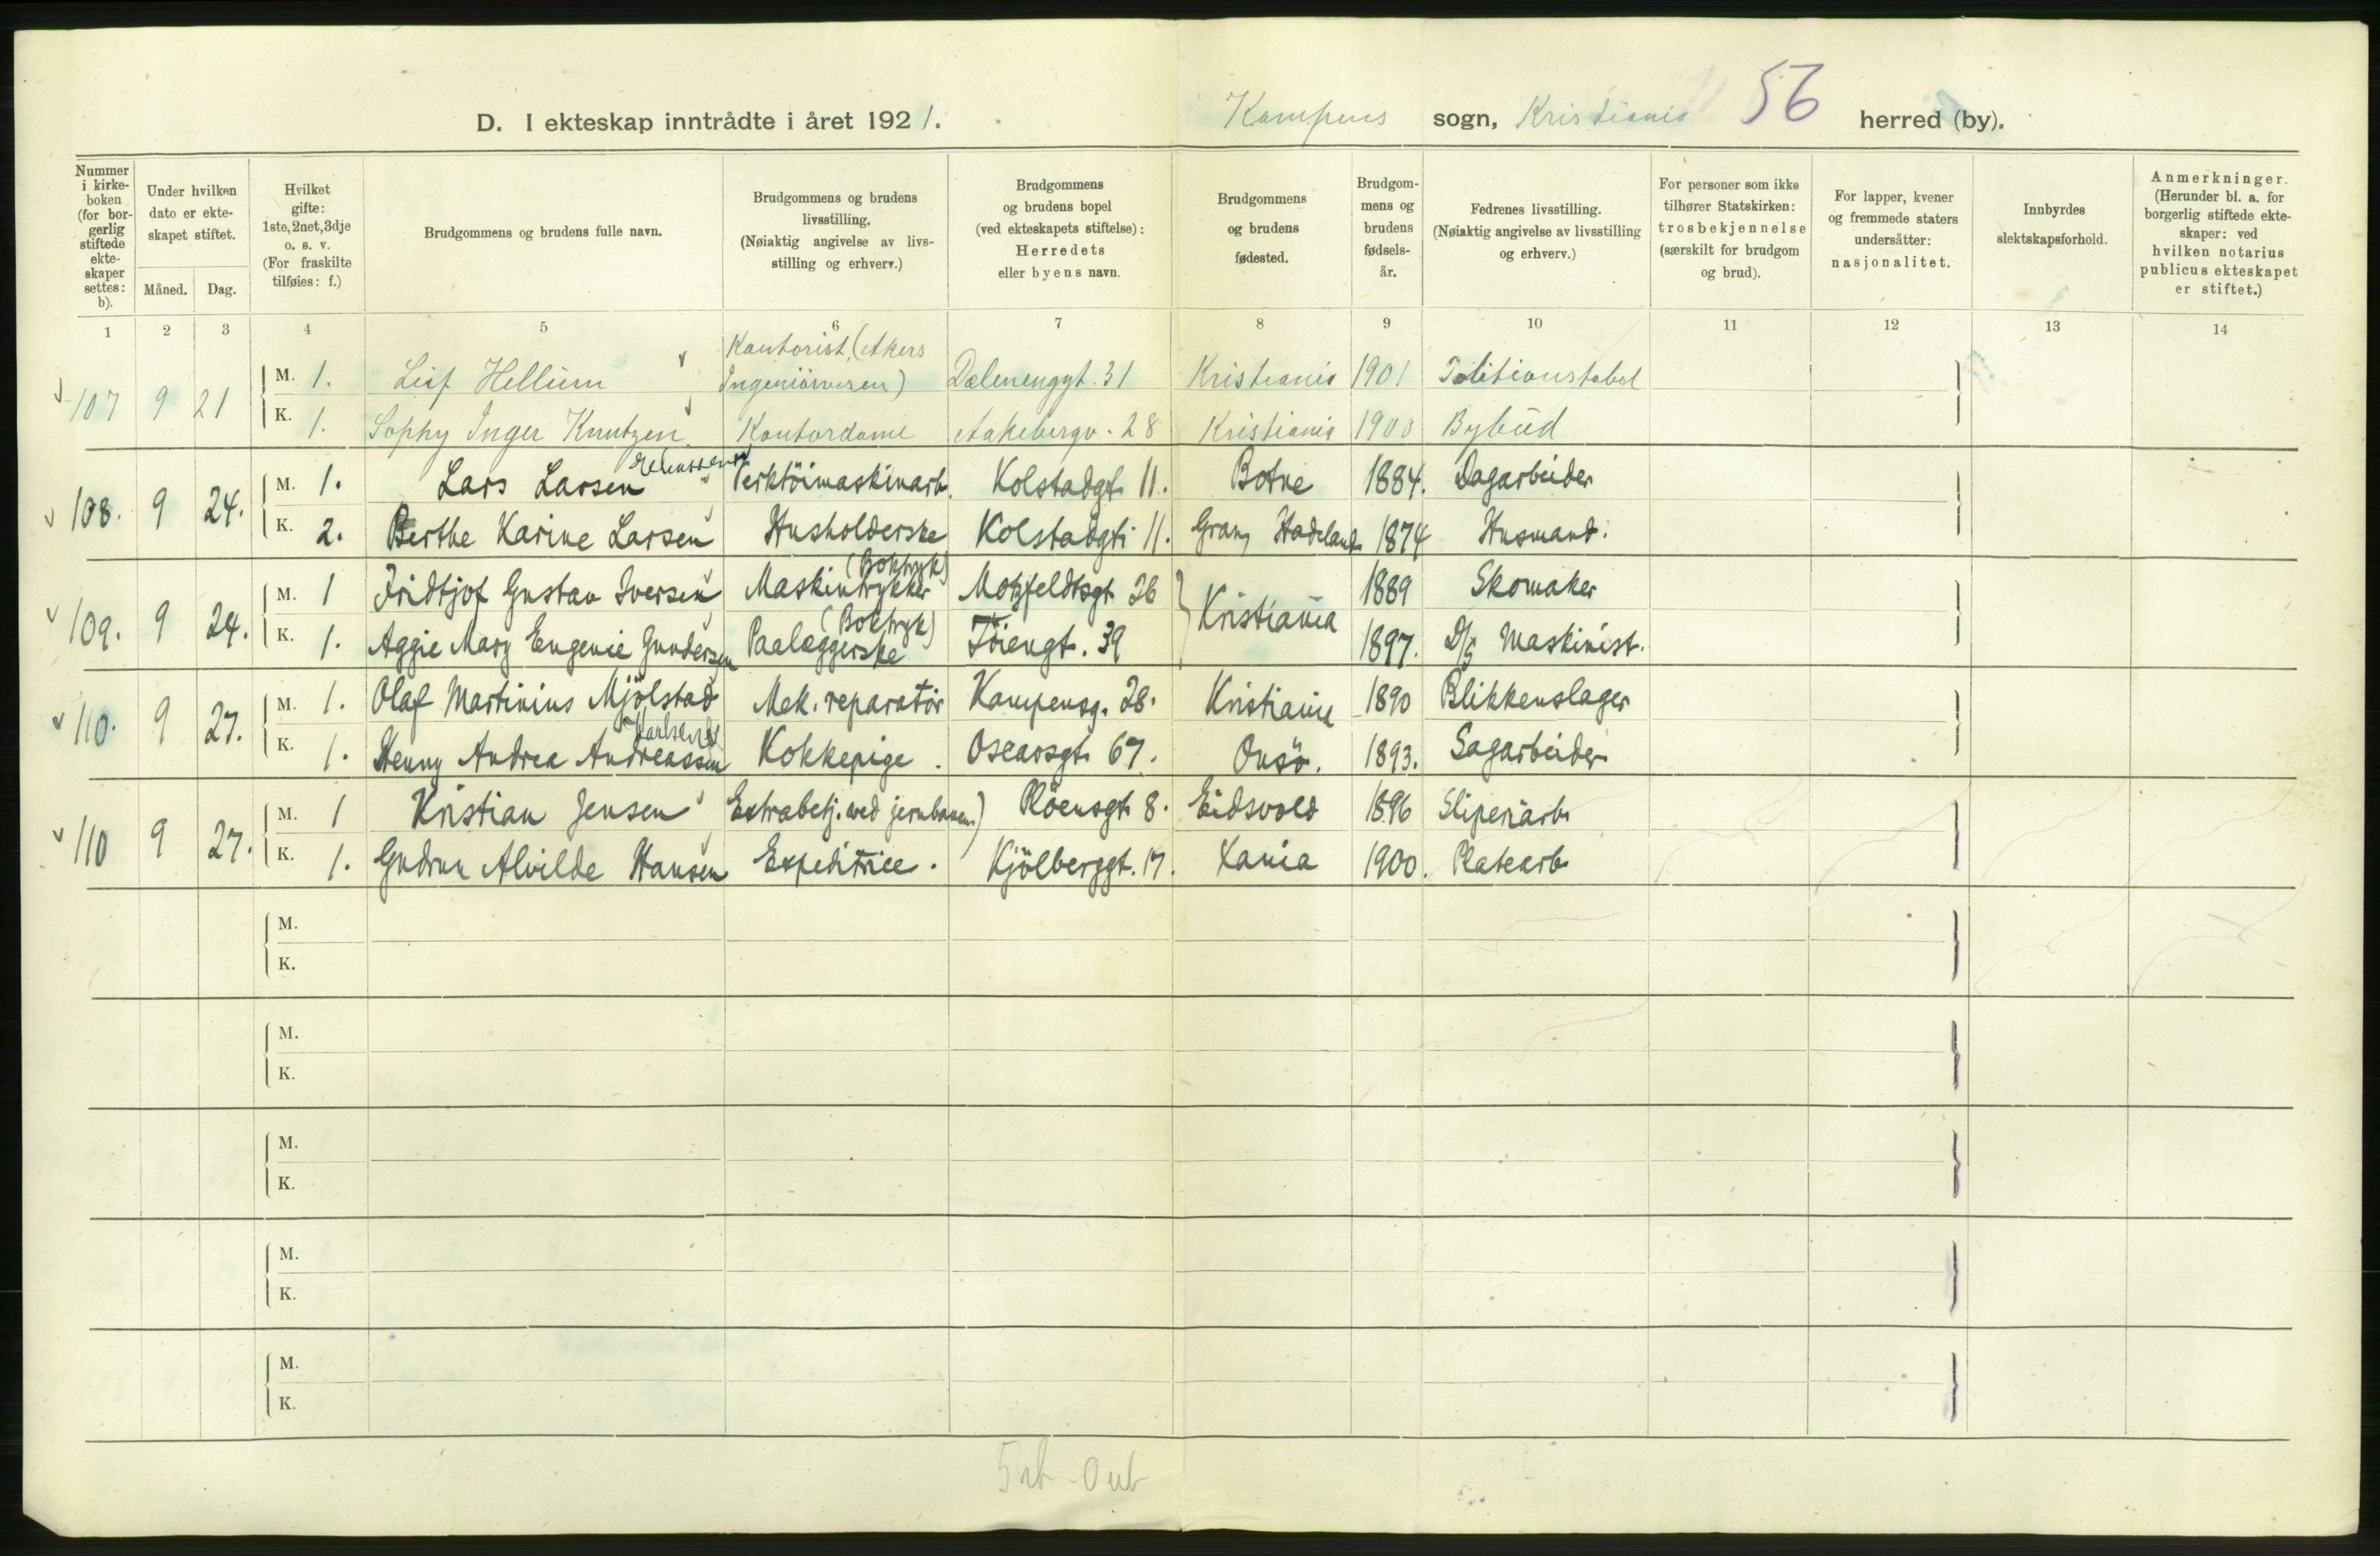 D. I ekteskap inntrådte i året 1921. Kampens sogn, Kristiania 56 herred (by).
Nummer i kirkeboken (for borgerlig stiftede ekteskaper settes: b).
Under hvilken dato er ekteskapet stiftet.
Måned. Dag.
Hvilket gifte: 1ste, 2net, 3dje o. s. v. (For fraskilte tilføies: f.)
Brudgommens og brudens fulle navn.
Brudgommens og brudens livsstilling. (Nøiaktig angivelse av livsstilling og erhverv.)
Brudgommens og brudens bopel (ved ekteskapets stiftelse): Herredets eller byens navn.
Brudgommens og brudens fødested.
Brudgommens og brudens fødselsår.
Fedrenes livsstilling. (Nøiaktig angivelse av livsstilling og erhverv.)
For personer som ikke tilhører Statskirken: trosbekjennelse (særskilt for brudgom og brud).
For lapper, kvener og fremmede staters undersåtter: nasjonalitet.
Innbyrdes slektskapsforhold.
Anmerkninger. (Herunder bl. a. for borgerlig stiftede ekteskaper: ved hvilken notarius publicus ekteskapet er stiftet.)
1 2 3 4 5 6 7 8 9 10 11 12 13 14
107 9 21
M. 1. Leif Hellum Kontorist, (Akers Ingeniörvesen) Dælenenggt. 31 Kristiania 1901 Politikonstabel
K. 1. Sophy Inger Knutzen Kontordame Aakebergv. 28 Kristiania 1900 Bybud
108. 9 24.
M. 1. Lars Larsen Verktöimaskinarb. Kolstadgt. 11. Botne 1884. Dagarbeider
K. 2. Berthe Karine Larsen Husholderske Kolstadgt. 11. Gran, Hadeland 1874 Husmand.
109. 9 24.
M. 1 Fridtjof Gustav Iversen Maskintrykker (Boktryk) Motzfeldtsgt. 26 Kristiania 1889 Skomaker
K. 1. Aggie Mary Eugenie Gundersen Paalæggerske (Boktryk) Töiengt. 39 1897. D/S Maskinist.
110. 9 27.
M. 1. Olaf Martinius Mjölstad Mek. reparatör Kampensg. 28. Kristiania 1890 Blikkenslager
K. 1. Henny Andrea Andreassen Karlsen Kokkepige. Oscarsgt. 67. Onsö. 1893. Sagarbeider
110 9 27.
M. 1 Kristian Jensen Extrabetj. ved jernbanen) Plöensgt. 8. Eidsvold 1896 Sliperiarb.
K. 1. Gudrun Alvilde Hansen Expeditrice. Kjölberggt. 17. Xania 1900. Platearb.
M.
K.
M.
K.
M.
K.
M.
K.
M.
K.